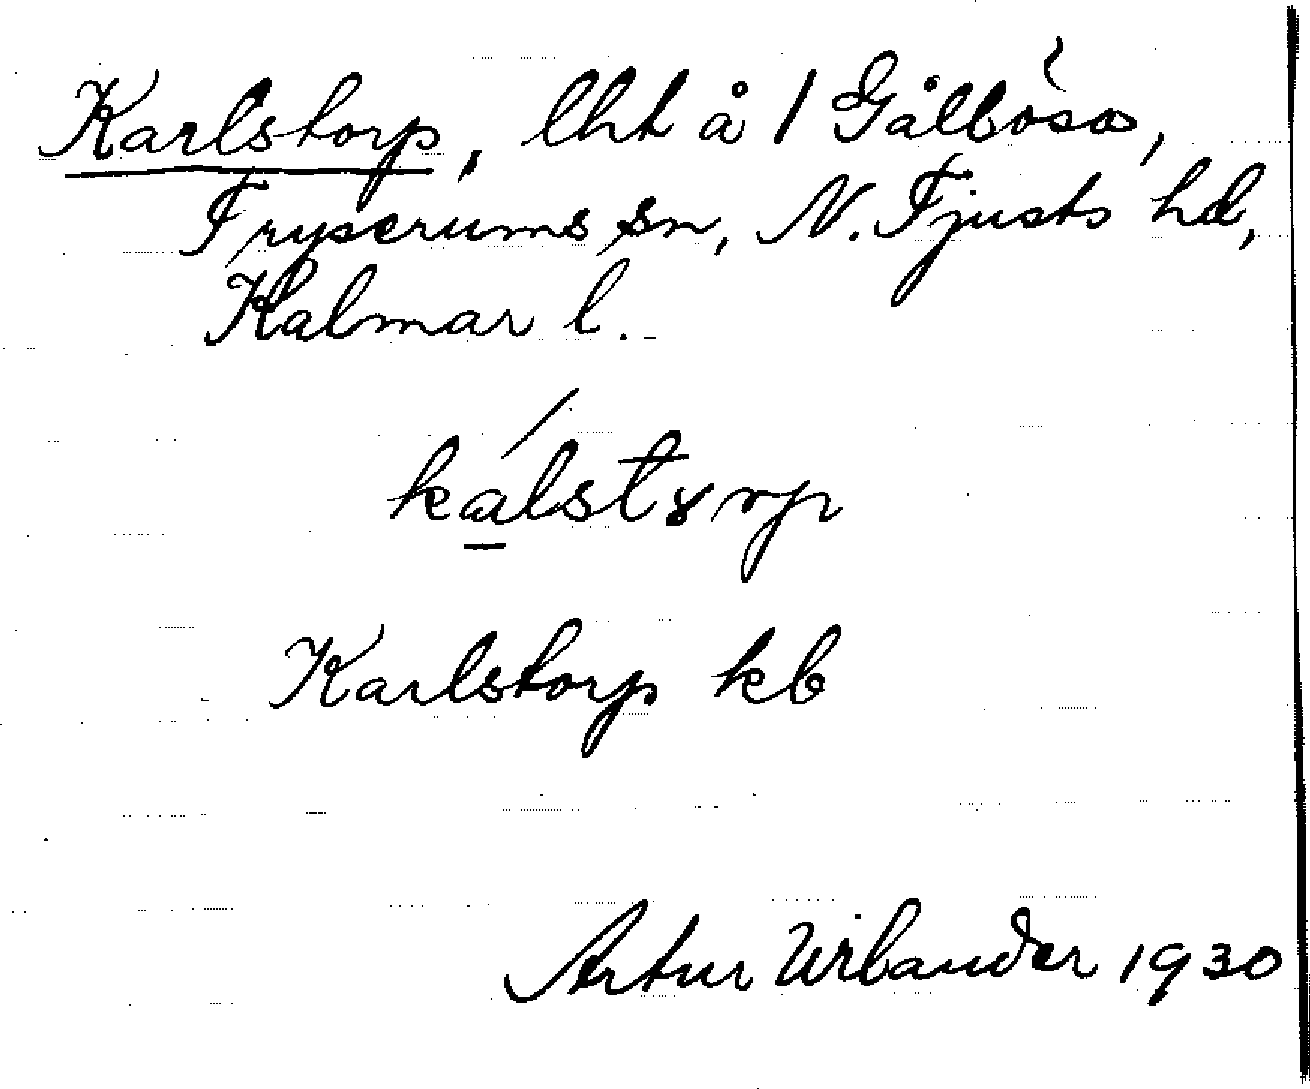 Karlstorp, lht å 1 Gålbösa,
Fryserums sn, N. Tjusts hd,
Kalmar l.
kálstɤrp
Karlstorp kb
Artur Wilander 1930